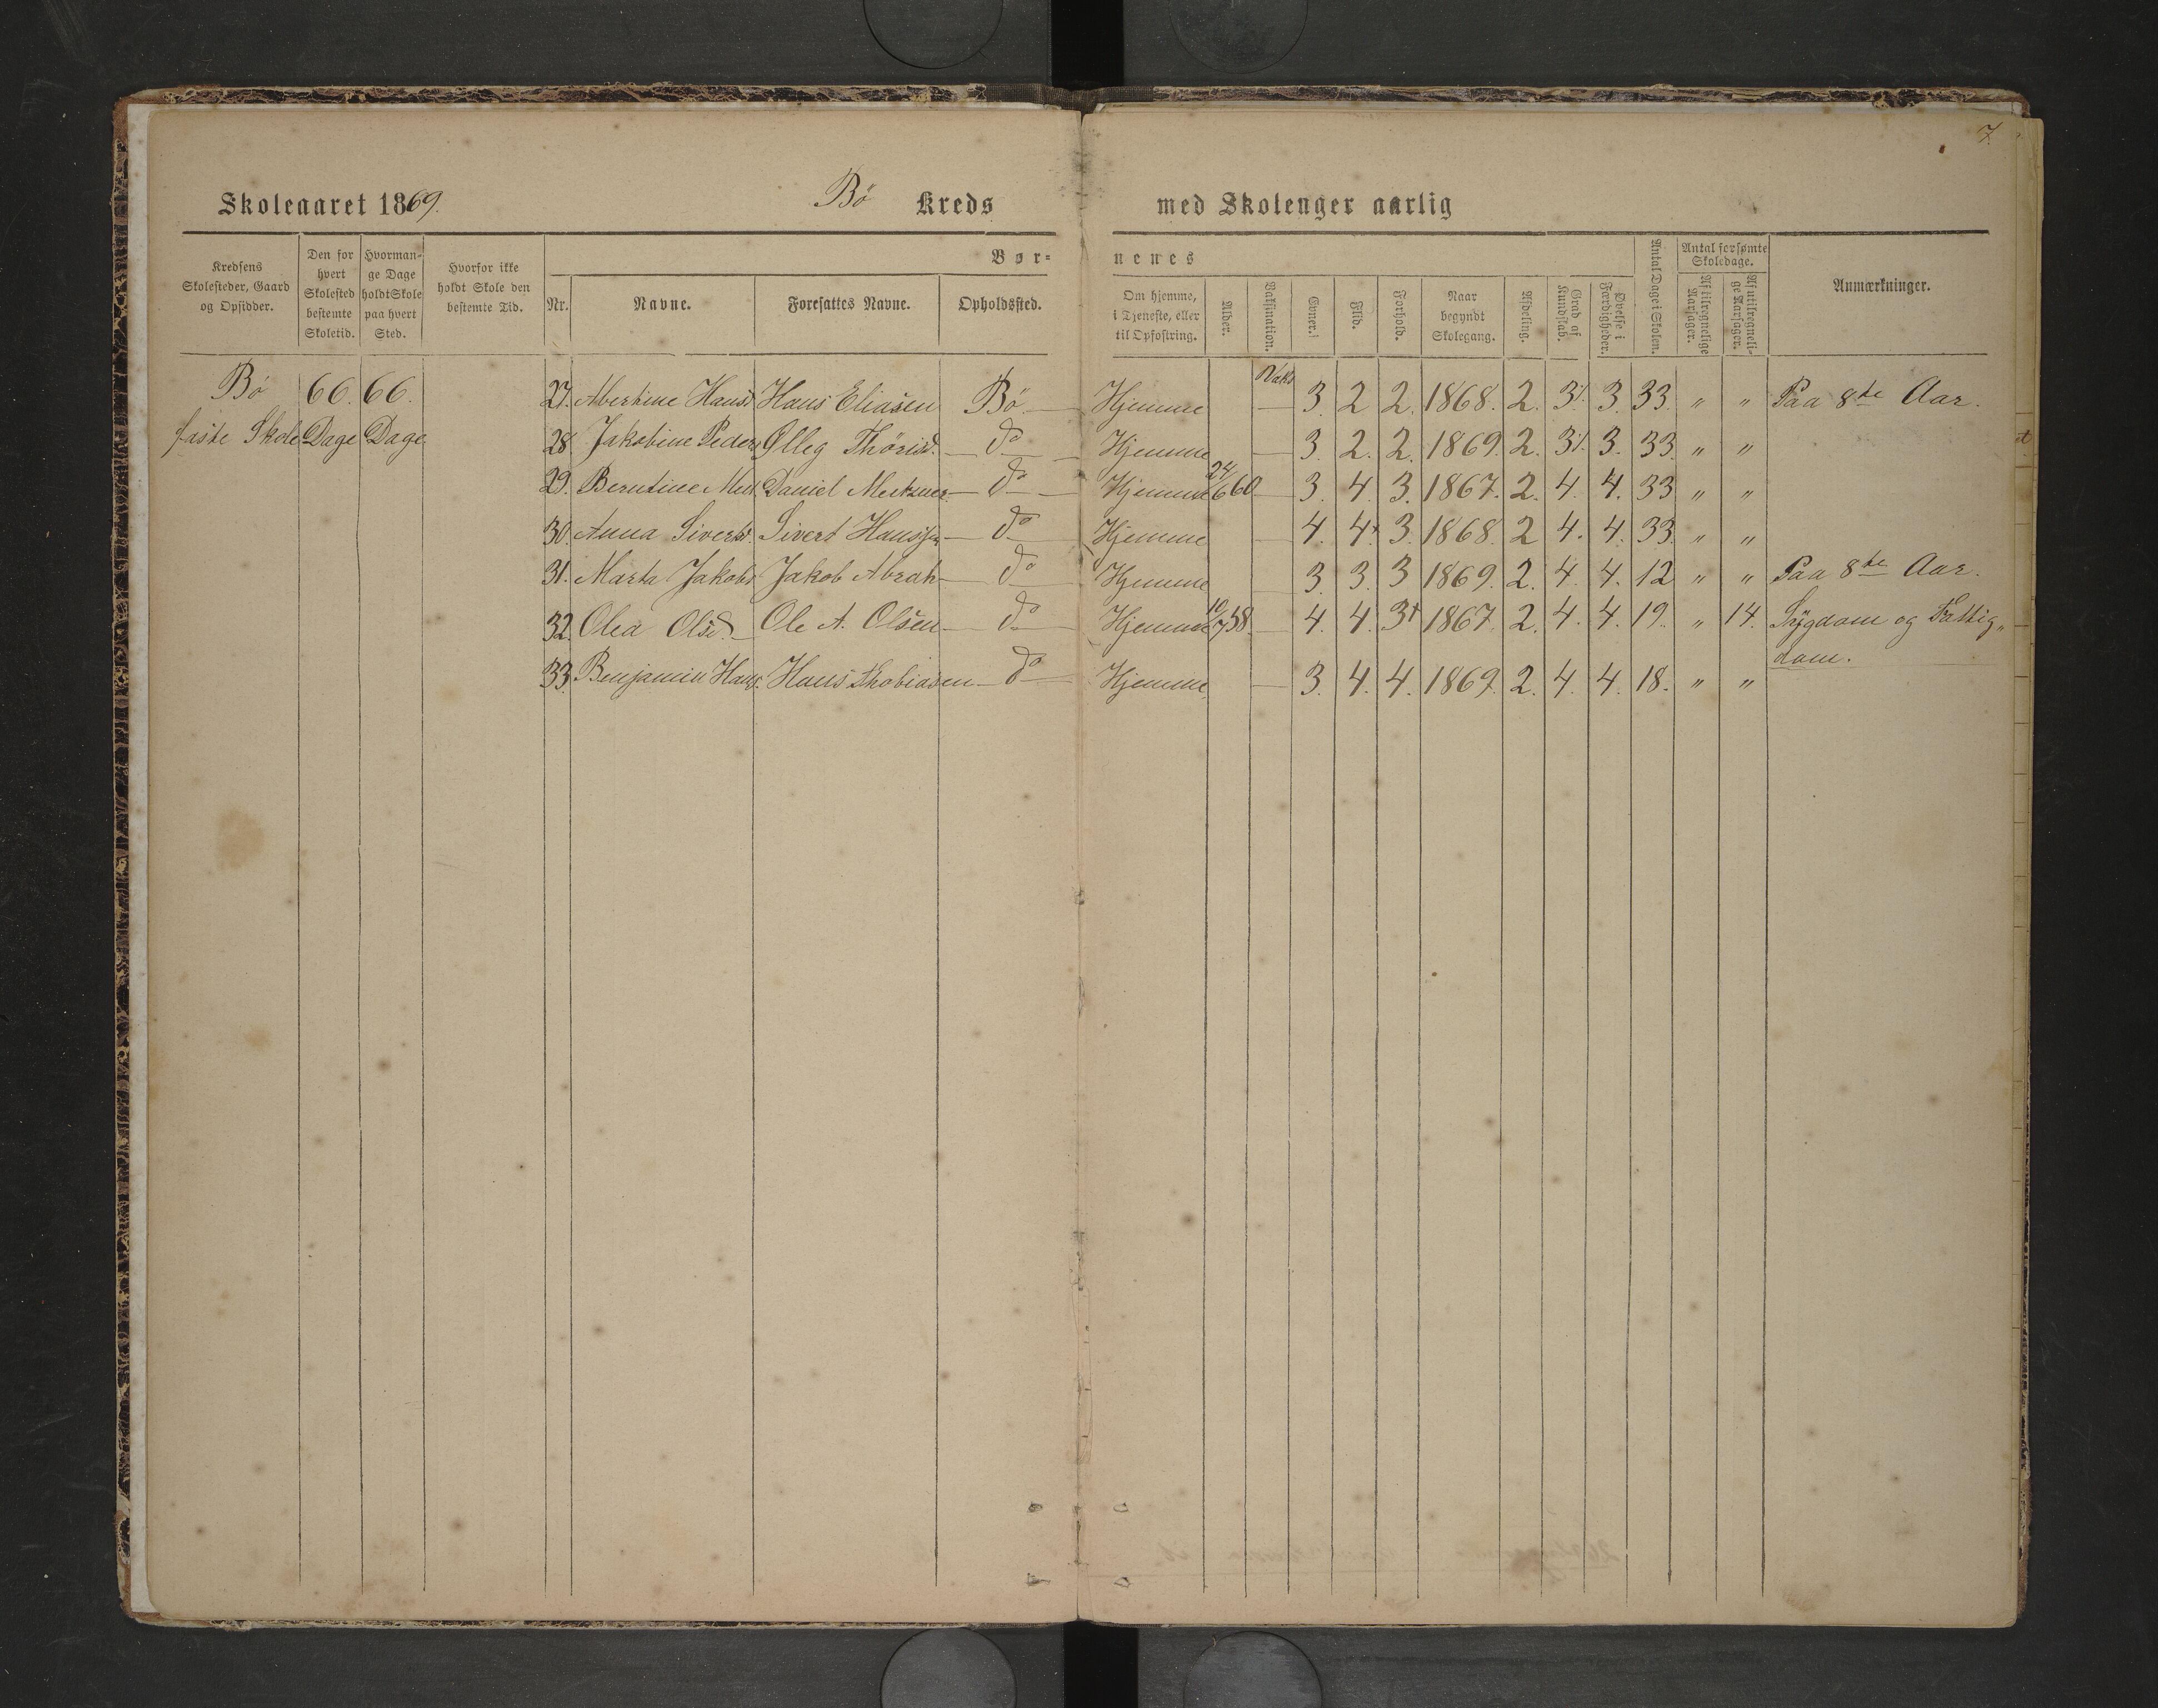 7.
Skoleaaret 1869. Bö Kreds med Skolenger aarlig
Kredsens Skolesteder, Gaard og Opsidder.
Den for hvert Skolested bestemte Skoletid.
Hvormange Dage holdt Skole paa hvert Sted.
Hvorfor ikke holdt Skole den bestemte Tid.
Børnenes
Nr.
Navne.
Foresattes Navne.
Opholdssted.
Om hjemme, i Tjeneste, eller til Opfostring.
Alder.
Vaksination.
Evner.
Flid.
Forhold.
Naar begyndt Skolegang.
Afdeling.
Grad af Kundskab.
Øvelse i Færdigheder.
Antal Dage i Skolen.
Antal forsømte Skoledage.
Af tilregnelige Aarsager.
Af utilregnelige Aarsager.
Anmærkninger.
Bö 66. 66. 27. Abertine Hansd Hans Eliasen Bö Hjemme Vaks 3. 2 2. 1868. 2. 3 3. 33. " " Paa 8de Aar.
faste Skole Dage Dage 28. Jakobine Peder Olleg Thörisd. do Hjemme 3. 2. 2. 1869. 2. 3 3. 33. " "
29. Berntine Daniel do Hjemme 24/6 60 3. 4. 3. 1867. 2. 4. 4. 33 " "
30. Anna Siverts. Sivert Hanss do Hjemme 4. 4+ 3. 1868. 2 4. 4. 33. " "
31. Marta Jakobs Jakob Abrah do Hjemme 3. 3. 3 1869. 2. 4. 4. 12 " " Paa 8de Aar.
32. Olea Olsd. Ole A. Olsen do Hjemme 10/7 58. 4. 4. 3+ 1867. 2. 4. 4. 19. " 14. Sygdom og Fattig„
dom.
33. Benjamin Hans. Hans Thobiasen do Hjemme 3. 4. 4. 1869. 2. 4. 4. 18. " "